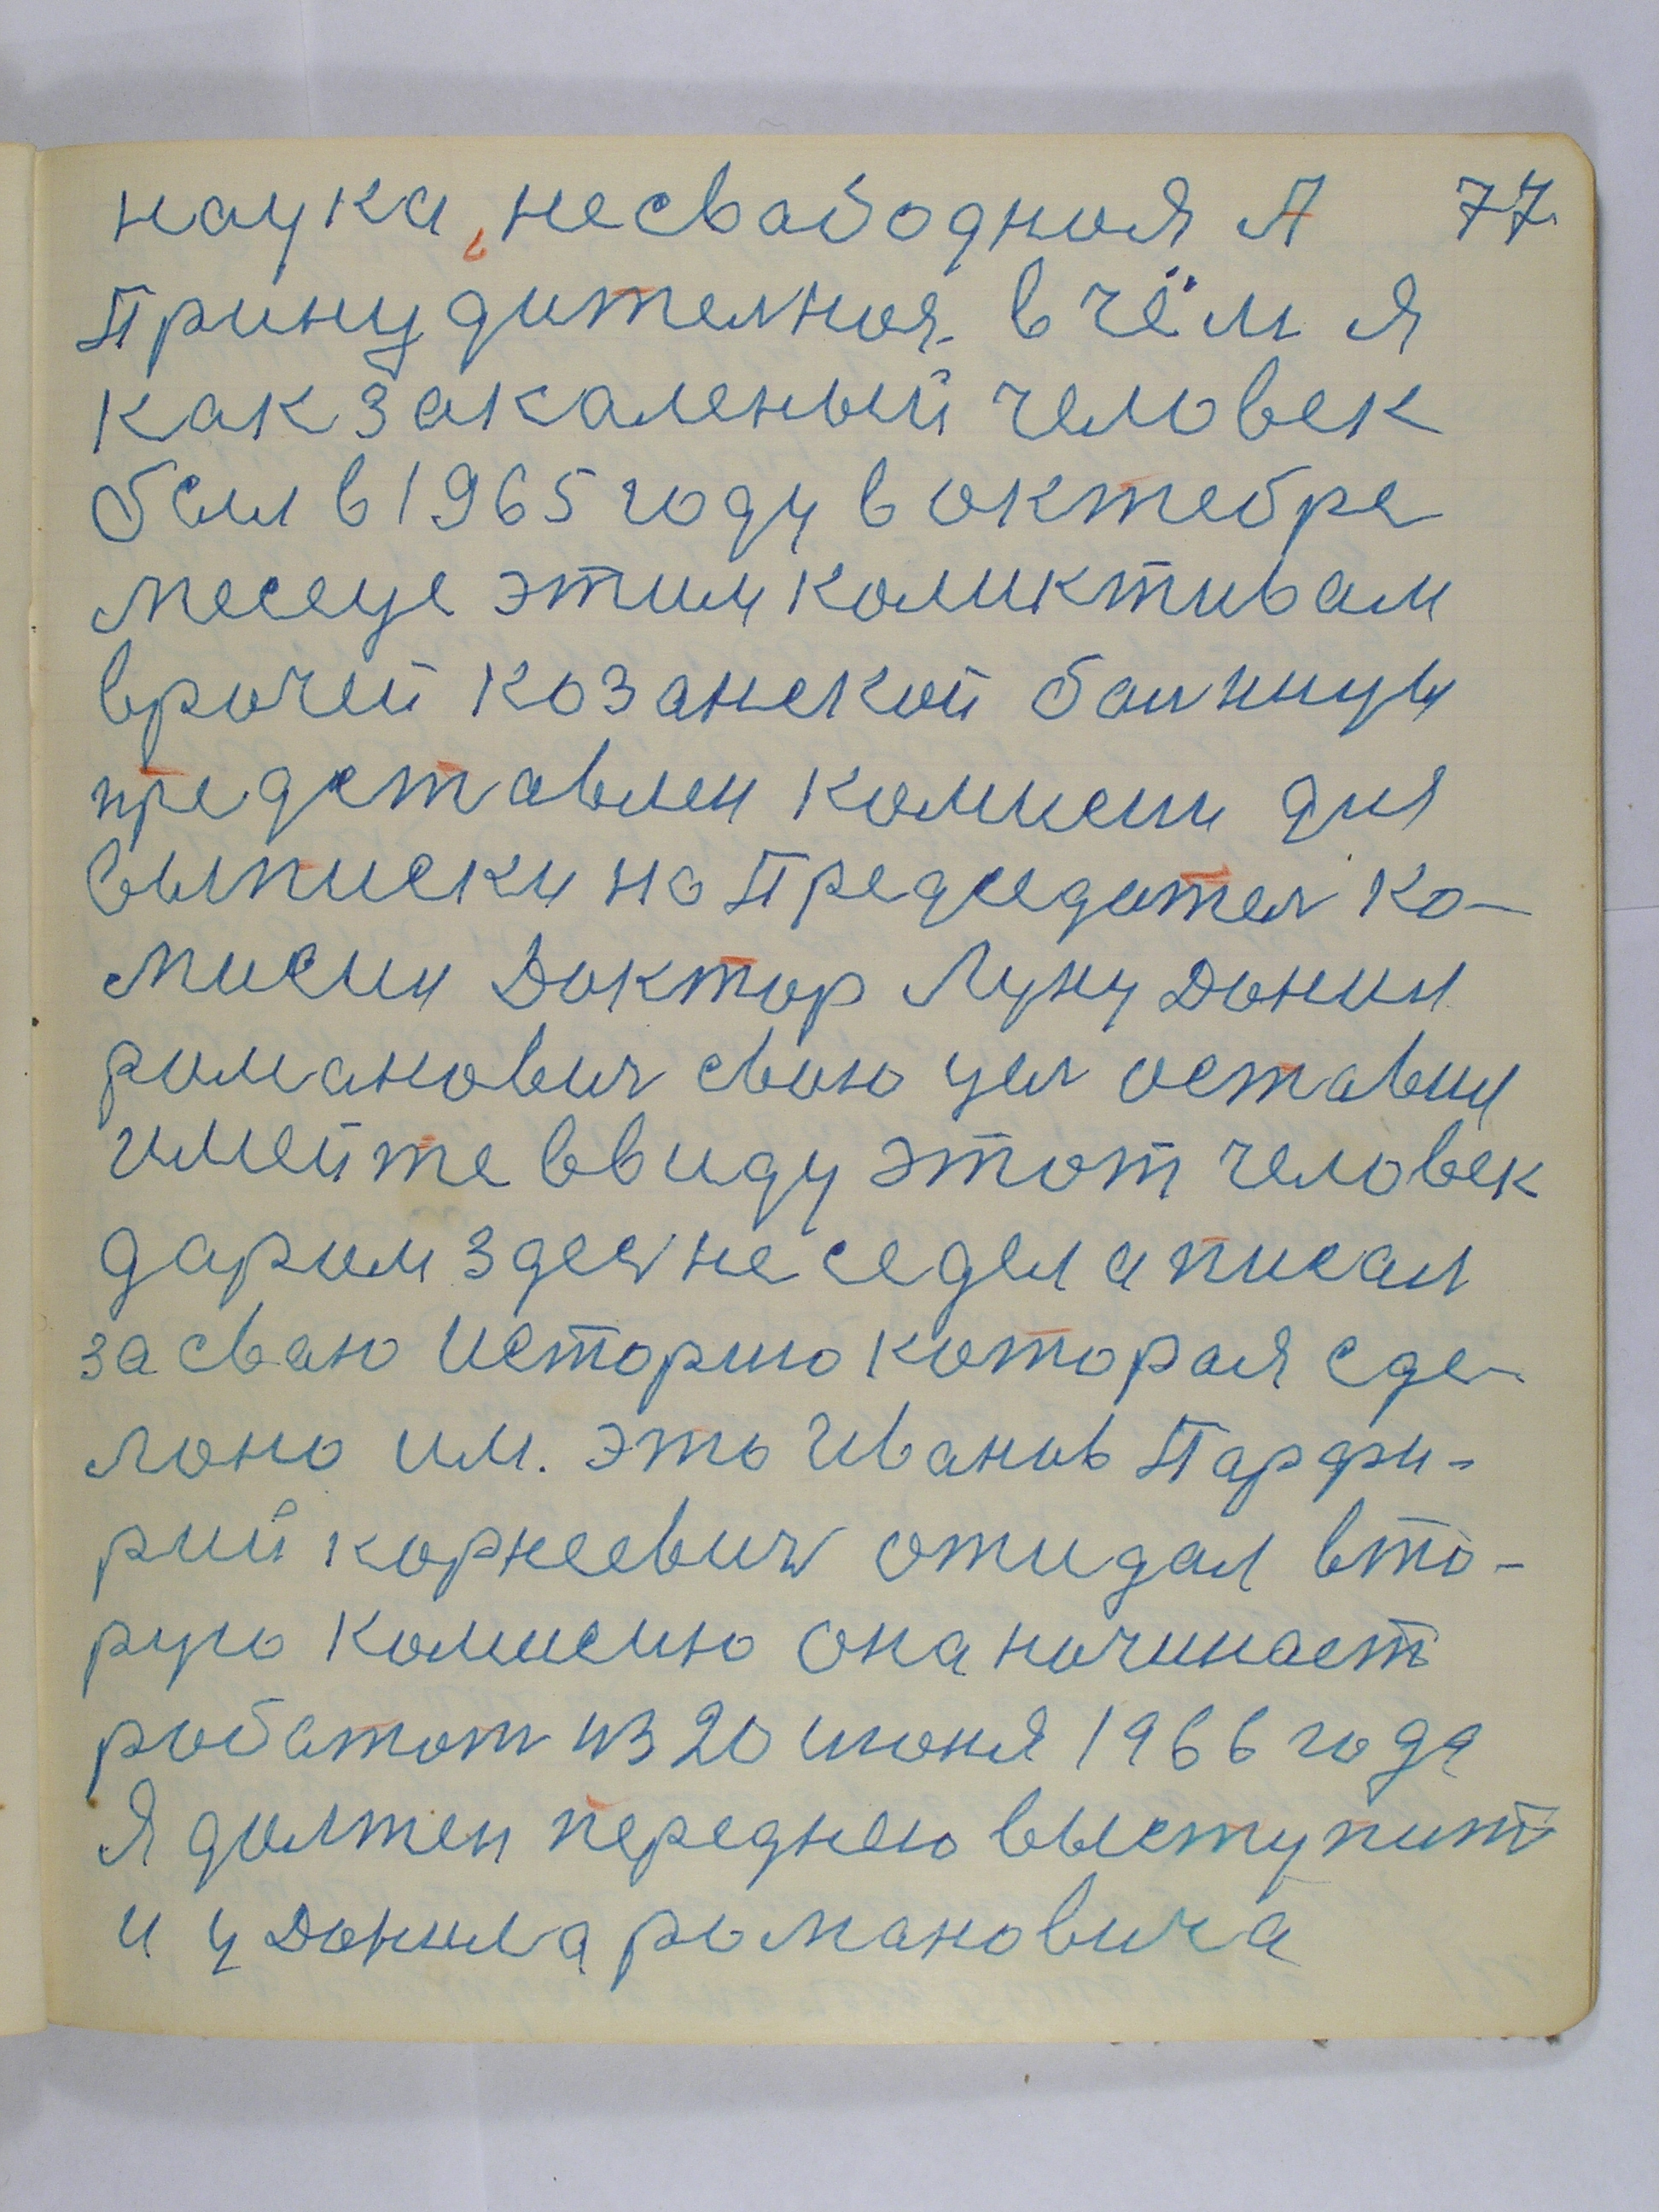 наука, несвабодная А 77.
Принудителная. в чём я
как закаленый человек
был в 1965 году в октебре
месеце этим коликтивам
врачей козанской балницы
представлен комисии для
выписки но Председател ко-
мисии Доктор Луну Донил
романович свою цел оставил
имейте ввиду этот человек
даром здес не седел а писал
за сваю Историю которая сде-
лоно им. это Иванов Парфи-
рий корнеевич ожидал вто-
рую комисию она начинает
работат из 20 июня 1966 года
Я должен переднею выступит
и у Донила романовича